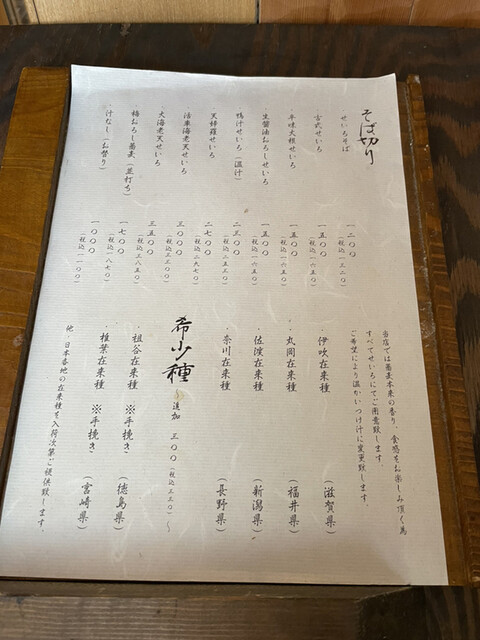 そば切り
せいろそば 一二〇〇（税込一三二〇）
古式せいろ 一五〇〇（税込一六五〇）
辛味大根せいろ 一五〇〇（税込一六五〇）
生醤油おろしせいろ 一五〇〇（税込一六五〇）
鴨汁せいろ（温汁） 二三〇〇（税込二五三〇）
天婦羅せいろ 二七〇〇（税込二九七〇）
活車海老天せいろ 三〇〇〇（税込三三〇〇）
大海老天せいろ 三五〇〇（税込三八五〇）
梅おろし蕎麦（並打ち） 一七〇〇（税込一八七〇）
汁なし（お替り） 一〇〇〇（税込一一〇〇）
当店では蕎麦本来の香り、食感をお楽しみ頂く為
すべてせいろにてご用意致します。
ご希望により温かいつけ汁に変更致します。
・伊吹在来種（滋賀県）
・丸岡在来種（福井県）
・佐渡在来種（新潟県）
・奈川在来種（長野県）
希少種 追加 三〇〇（税込三三〇）〜
・祖谷在来種 ※手挽き（徳島県）
・椎葉在来種 ※手挽き（宮崎県）
他、日本各地の在来種を入荷次第ご提供致します。